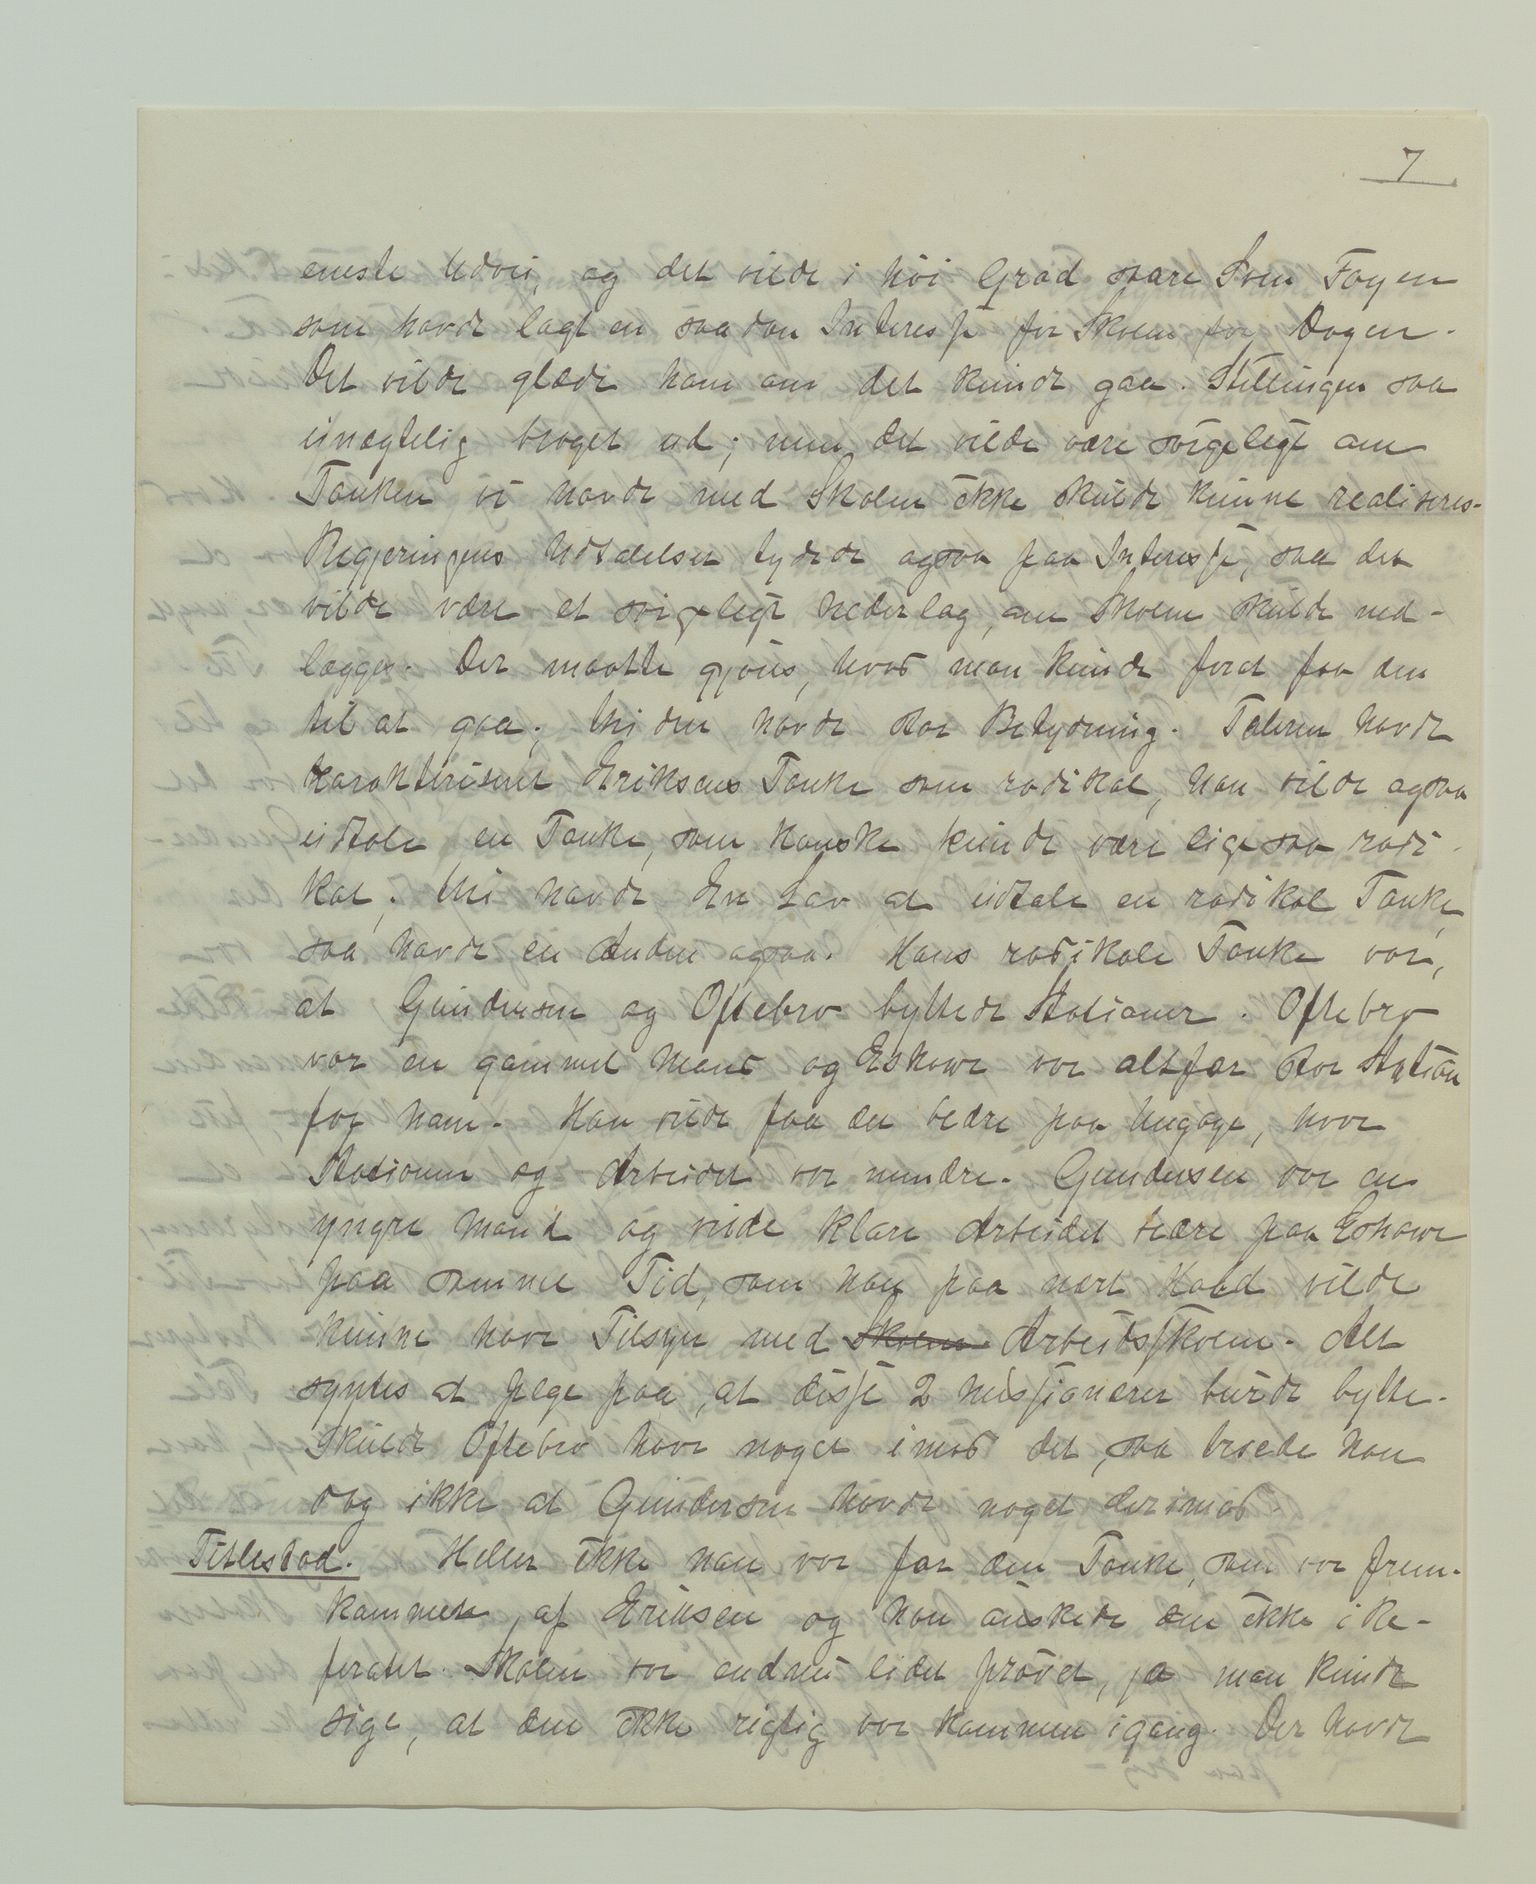 7
eneste Udvei, og det vilde i høi Grad saare Sven Foyn
som havde lagt en saadan Interesse for Skolen for Dagen.
Det vilde glæde ham om det kunde gaa. Stillingen saa
unægtelig broget ud; men det vilde være sørgeligt om
Tanken vi havde med Skolen ikke skulde kunne realiseres.
Regjeringens Udtalelser tydede ogsaa paa Interesse, saa det
vilde være et sørgeligt Nederlag, om Skolen skulde ned-
lægges. Der maatte gjøres, hvad man kunde forat faa den
til at gaa; thi den havde stor Betydning. Taleren havde
karakteriseret Eriksens Tanke som radikal, han vilde ogsaa
udtale en Tanke, som kanske kunde være ligesaa radi-
kal; thi havde En Lov at udtale en radikal Tanke,
saa havde en Anden ogsaa. Hans radikale Tanke var,
at Gundersen og Oftebro byttede Stationer. Oftebro
var en gammel Mand og Eshowe var altfor stor Station
for ham. Han vilde faa det bedre paa Ungoye, hvor
Stationen og Arbeidet var mindre. Gundersen var en
yngre Mand og vilde klare Arbeidet bedre paa Eshowe
paa samme Tid, som han paa nært Hold vilde
kunne have Tilsyn med Skolen Arbeidsskolen. Alt
syntes at pege paa, at disse 2 Missionærer burde bytte.
Skulde Oftebro have noget imod det, saa troede han
dog ikke at Gundersen havde noget derimod.
Titlestad. Heller ikke han var for den Tanke, som var frem-
kommet af Eriksen og han ønskede den ikke i Re-
feratet. Skolen var endnu lidet prøvet, ja man kunde
sige, at den ikke rigtig var kommen igang. Der havde